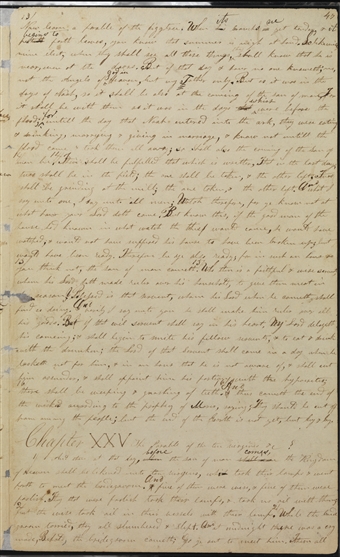 Now learn a parable of the figgtree, When its branches are yet tender, & it
begins to put forth leaves, you know that summer is nigh at hand, So likewise
mine elect, when they shall see all these things, shall know that he is
near, even at the doors, But of that day & hour no one knoweth, no,
not the Angels of Heaven, but my Father only, But as it was in the
days of Noah, so it shall be also at the coming of the son of man, For
it shall be with them as it was in the days which were before the
flood, for until the day that Noah entered into the ark, they were eating
& drinking, marrying & giving in marriage, & knew not until the
flood came & took them all away, so shall also the coming of the son of
man be, Then shall be fulfilled that which is written, that in the last days
two shall be in the field, the one shall be taken, & the other left, Two
shall be grinding at the mill, the one taken, & the other left, And what I
say unto one, I say unto all men, Watch therefore, for ye know not at
what hour your Lord doth come, But know this, if the good man of the
house had known in what watch the thief would come, he would have
watched, & would not have suffered his house to have been broken up, but
would have been ready, Therefore be ye also ready, for in such an hour as
you think not, the son of man cometh, Who then is a faithful & wise servant
whom his Lord hath made ruler over his household, to give them meat in
season, Blessed is that servant, whom his Lord when he cometh, shall
find so doing, And verily I say unto you he shall make him ruler over all
his goods, But if that evil servant shall say in his heart, My Lord delayeth
his coming, & shall begin to smite his fellow servants, & to eat & drink
with the drunken, the Lord of that servant shall come in a day when he
looketh not for him, & in an hour that he is not aware of, & shall cut
him asunder, & shall appoint him his portion with the hypocrites,
there shall be weeping & gnashing of teeth, & thus cometh the end of
the wicked according to the prophecy of Moses, saying, They should be cut off
from among the people, but the end of the Earth is not yet, but by & by
Chapter XXV The Parable of the ten
at that day, before the son of man comes, the Kingdom
of Heaven shall be likened unto ten virgins, who took their lamps & went
forth to meet the bridegroom, And five of them were wise, & five of them were
foolish, They that were foolish took their lamps, & took no oil with them,
But the wise took oil in their vessels with their lamps, While the bride
groom tarried, they all slumbered & slept, And at midnight there was a cry
made, Behold, the bridegroom cometh, Go ye out to meet him, Then all